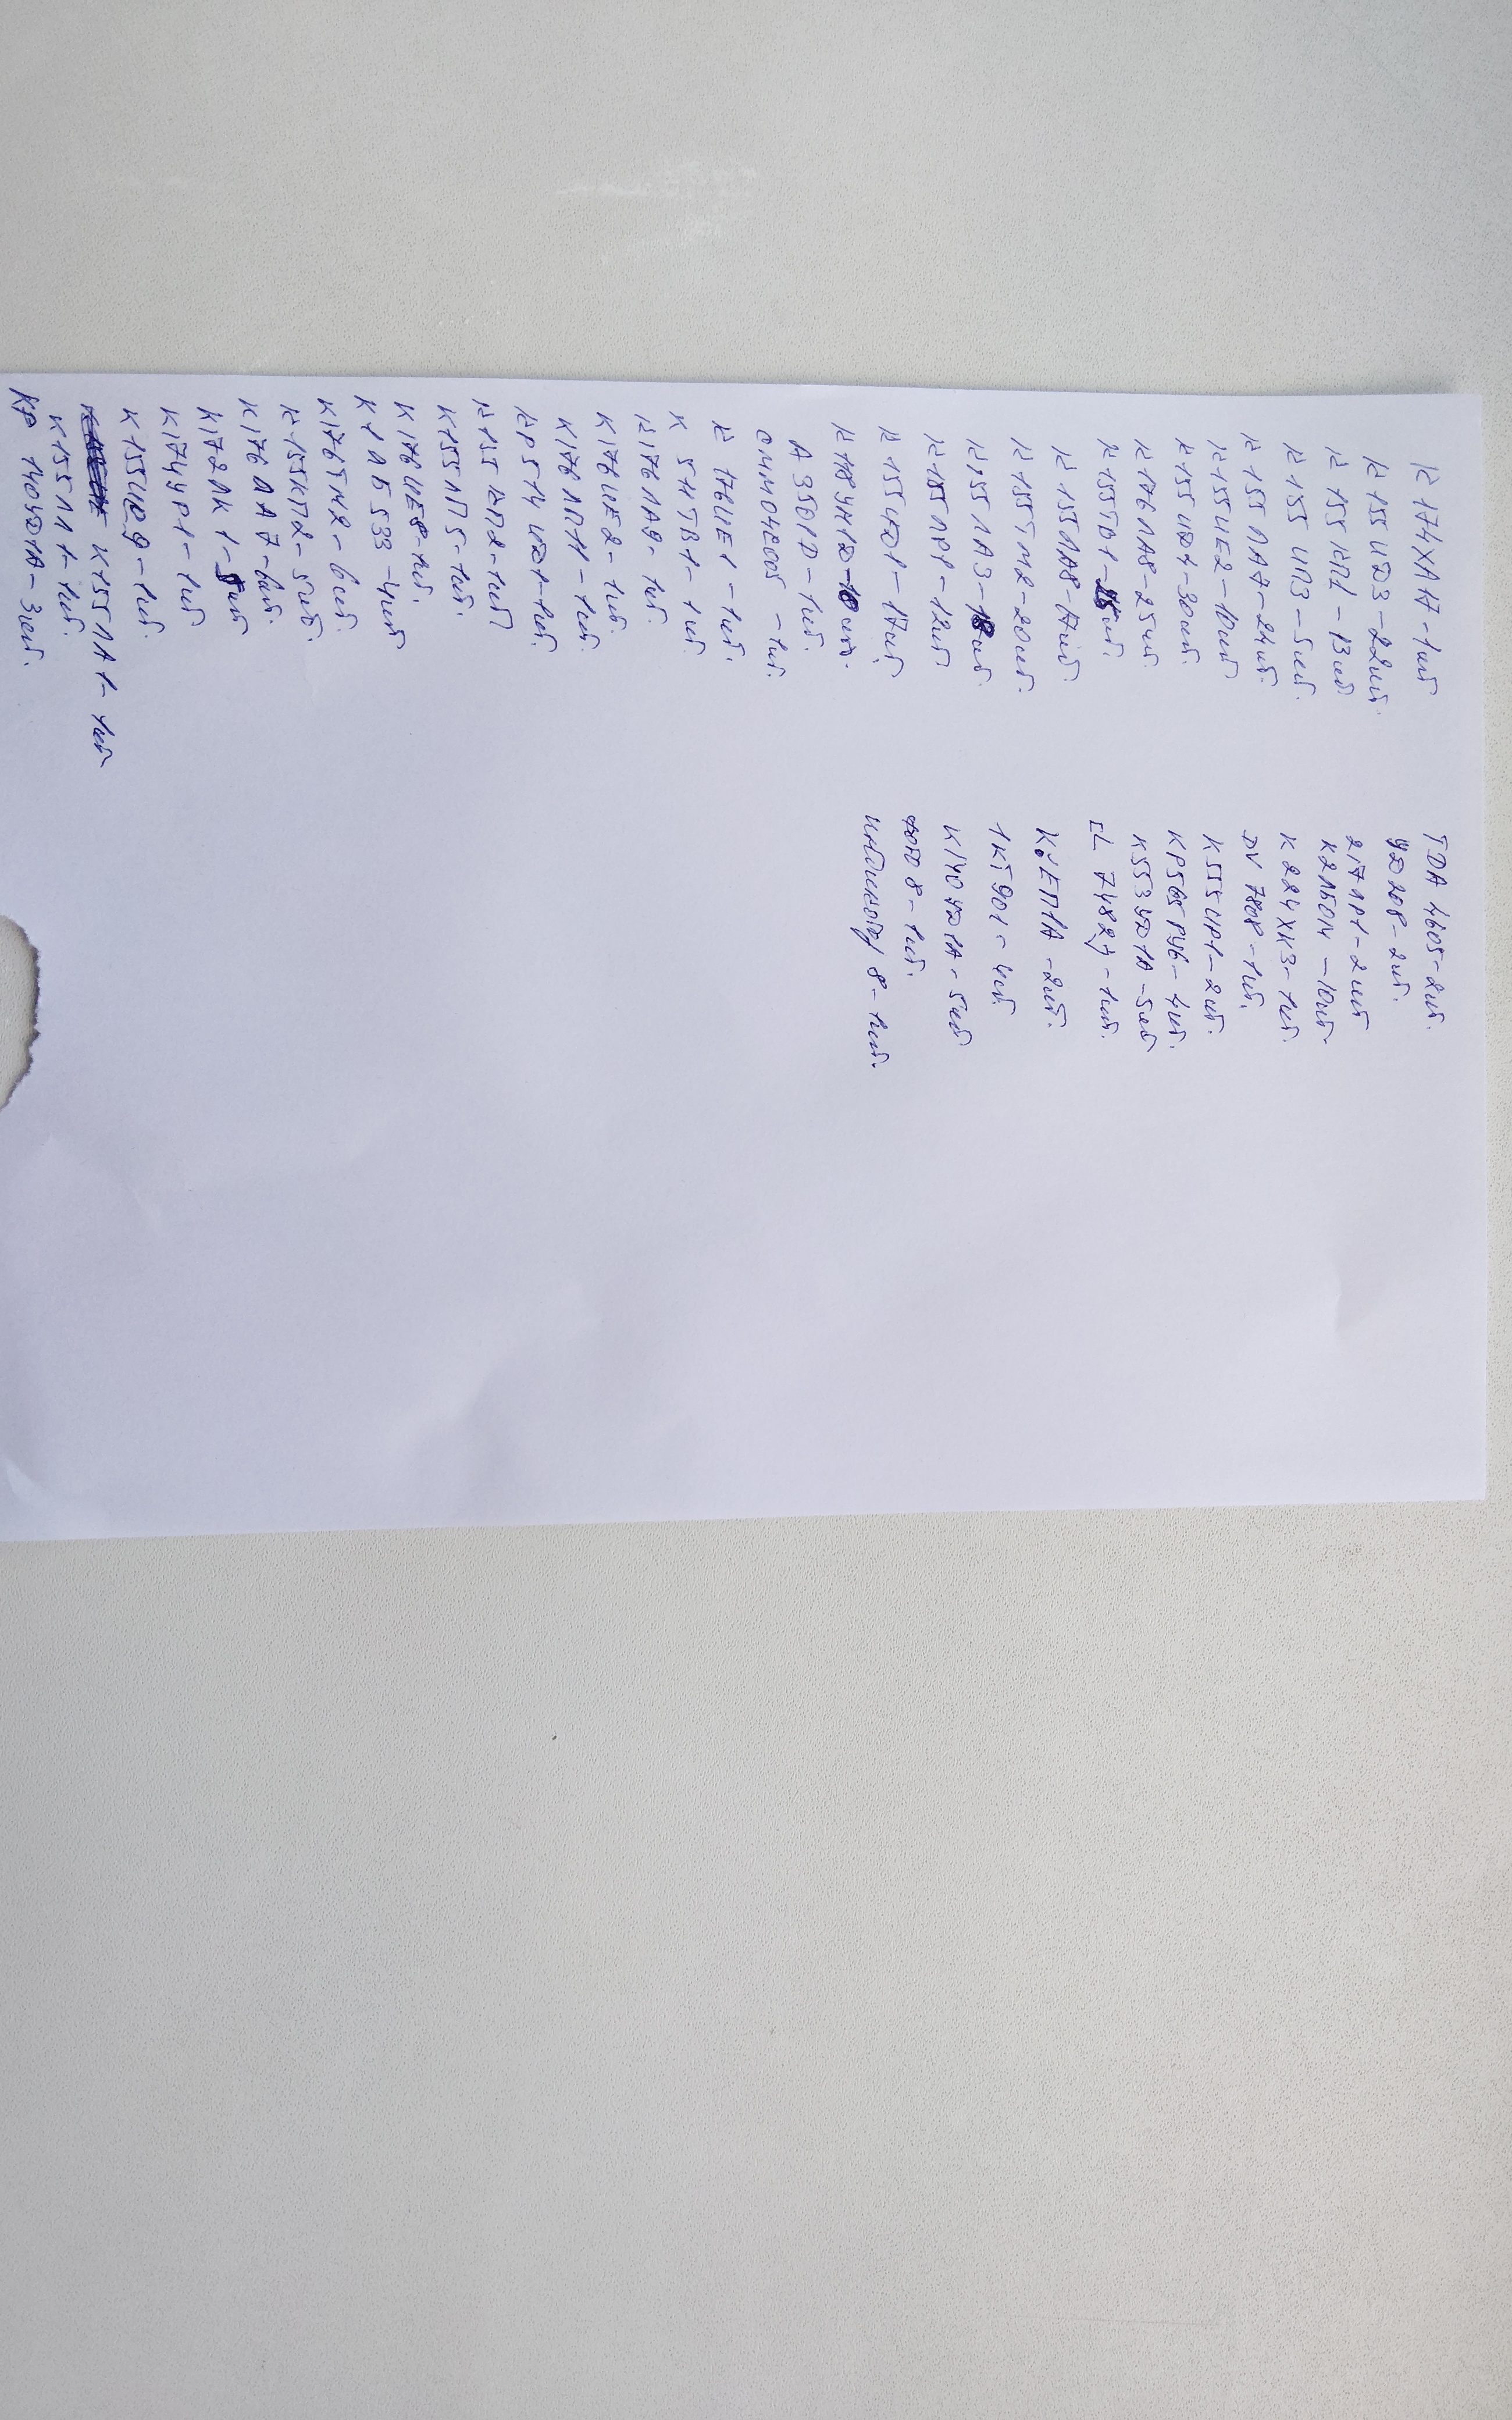 К174ХА17-1шт
К155ИД3-22шт.
К155КП1-13шт
К155ИП3-5шт.
К155ЛА7-24шт.
К155ИЕ2-10шт
К155ИД4-30шт.
К176ЛА8-25шт.
К155ТВ1-
К155ЛА8-17шт.
К155ТМ2-20шт.
К155ЛА3-18шт.
К155ЛР1-12шт.
К155ИД1-17шт.
К118УН1D-10шт.
А3501D-1шт.
-1шт.
К176ИЕ1-1шт.
К511ТВ1-1шт
К176ЛА9-1шт.
К176ИЕ2-1шт.
К176ЛП11-1шт.
КР514ИД1-1шт.
К155КП2-1шт
К155ЛП5-1шт.
К176ИЕ8-1шт.
К1ЛБ533-4шт
К176ТМ2-6шт.
К155КП2-5шт.
К176ЛА7-6шт.
К172ЛК1-5шт
К174УР1-1шт
К155ИЕ9-1шт.
К155ЛА1-1шт
К155ЛЛ1-1шт.
КР140УД1А-3шт.
TDA4605-2шт.
УД208-2шт.
217ЛР1-2шт
К224ХК3-1шт.
DV7808-1шт.
К555ИР1-2шт.
КР565РУ6-4шт.
К553УД1А-5шт
-1шт.
-2шт.
1КТ901-4шт
К140УД1А-5шт
8-1шт.
8-1шт.